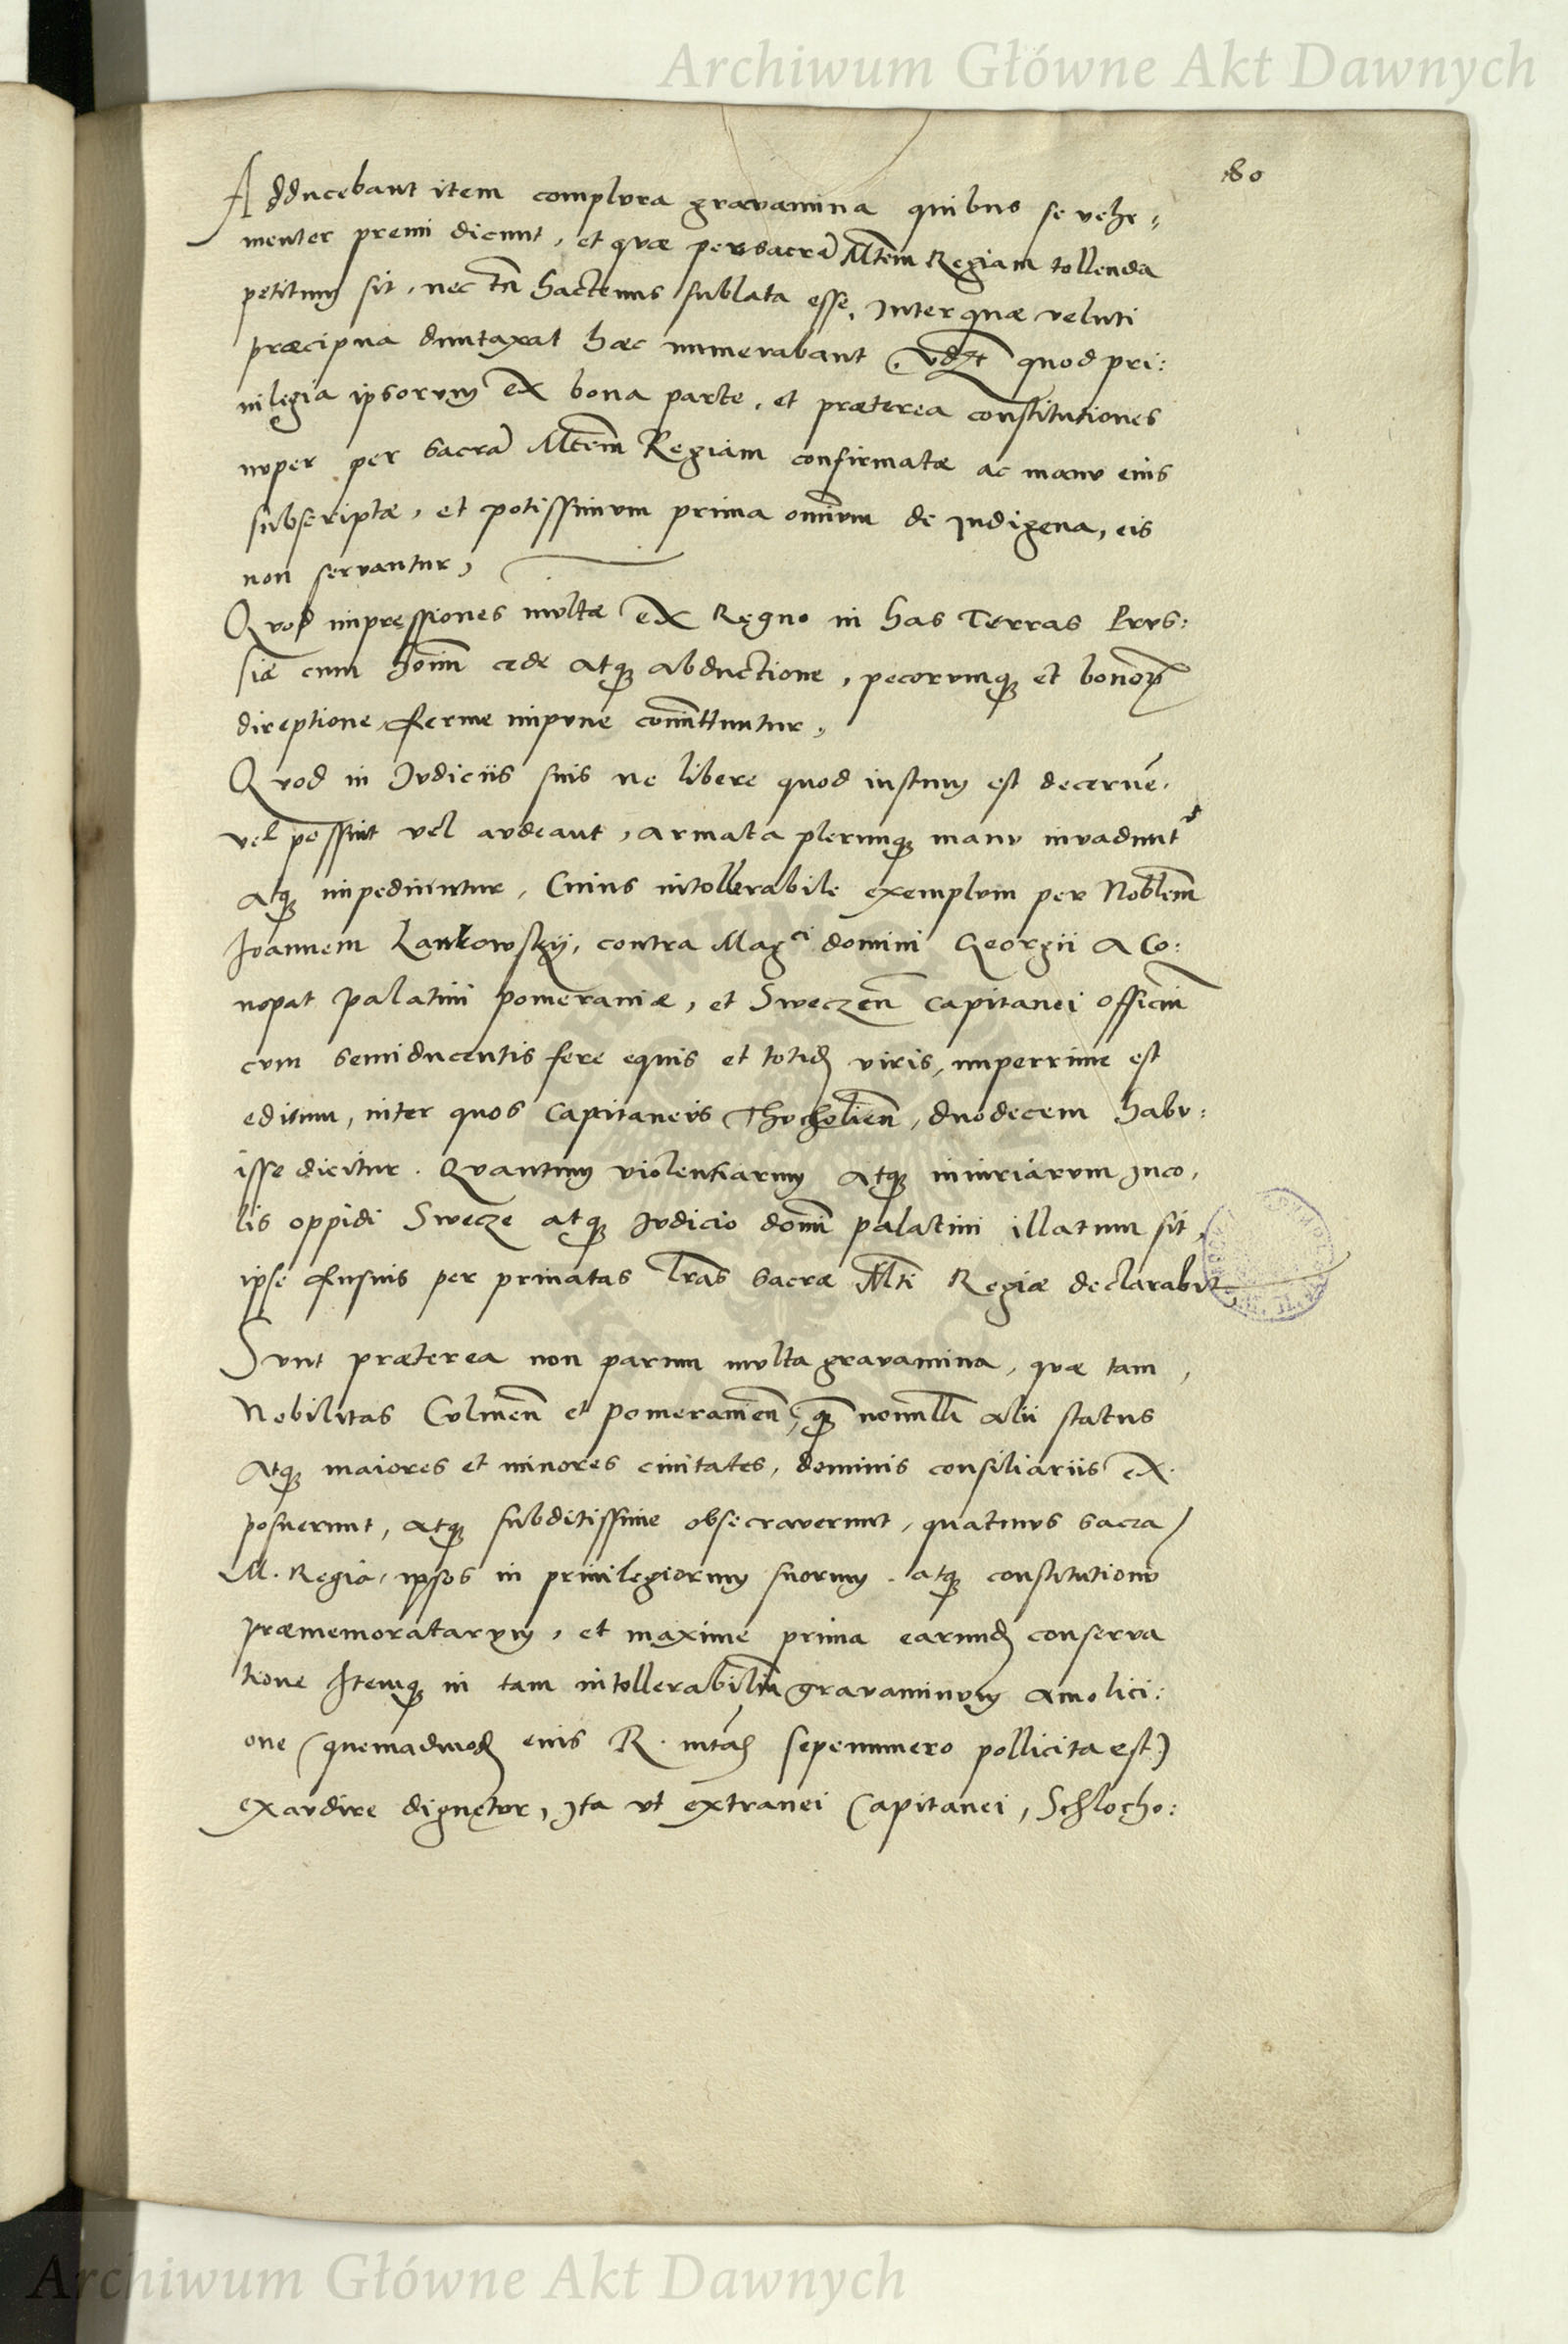 Archiwum Główne Akt Dawnych
80
Adducebant item complura gravamina quibus se vehe„
menter premi dicunt, et quae per sacrã Mtem Regiam tollenda
petitum sit, nec tñ hactenus sublata esse, Inter quae veluti
praecipua duntaxat haec numerabant, vdzt quod pri:
uilegia ipsorum ex bona parte, et praeterea constitutiones
nuper per sacrã Mtem Regiam confirmatae ac manu eius
subscriptae, et potissimum prima omium de Indigena, eis
non servantur,
Quod impressiones multae ex Regno in has Terras Prus:
siae cum homi͂m cede atq abductione, pecorumq et bonoꝝ
direptione ferme impune comittuntur,
Quod in Iudiciis suis ne libere quod iustum est decernẽ.
vel possint vel audeant, armata plerunq manu invadunt͛
atq impediuntur, Cuius intollerabile exemplum per Nobilem
Ioannem Lankowskÿ, contra Magci domini Georgii a Co:
nopat Palatini Pomeraniae, et Sweczeñ Capitanei officiũ
cum semiducentis fere equis et totid viris, nuperrime est
editum, inter quos Capitaneus Thucholieñ, duodecem habu:
isse dicitur. Quantum violentiarum atq iniuriarum Inco,
lis oppidi Swecze atq Iudicio domi Palatini illatum sit,
ipse fusius per priuatas lras sacrae Mti Regiae declarabit
Sunt praeterea non parum multa gravamina, quae tam,
Nobilitas Culmeñ et Pomeranieñ, q̃ nonnulli alii status
atq maiores et minores ciuitates, dominis consiliariis ex.
posuerunt, atq subditissime obsecraverunt, quatinus sacra
M. Regia, ipsos in priuilegiorum suorum. atq constitutionũ
praememoratarum, et maxime prima earund conserva
tione Itemq in tam intollerabiliũ gravaminum amolici:
one (quemadmod eius R. mtas sepenumero pollicita est)
exaudire dignetur, Ita ut extranei Capitanei, Schlocho:
Archiwum Główne Akt Dawnych